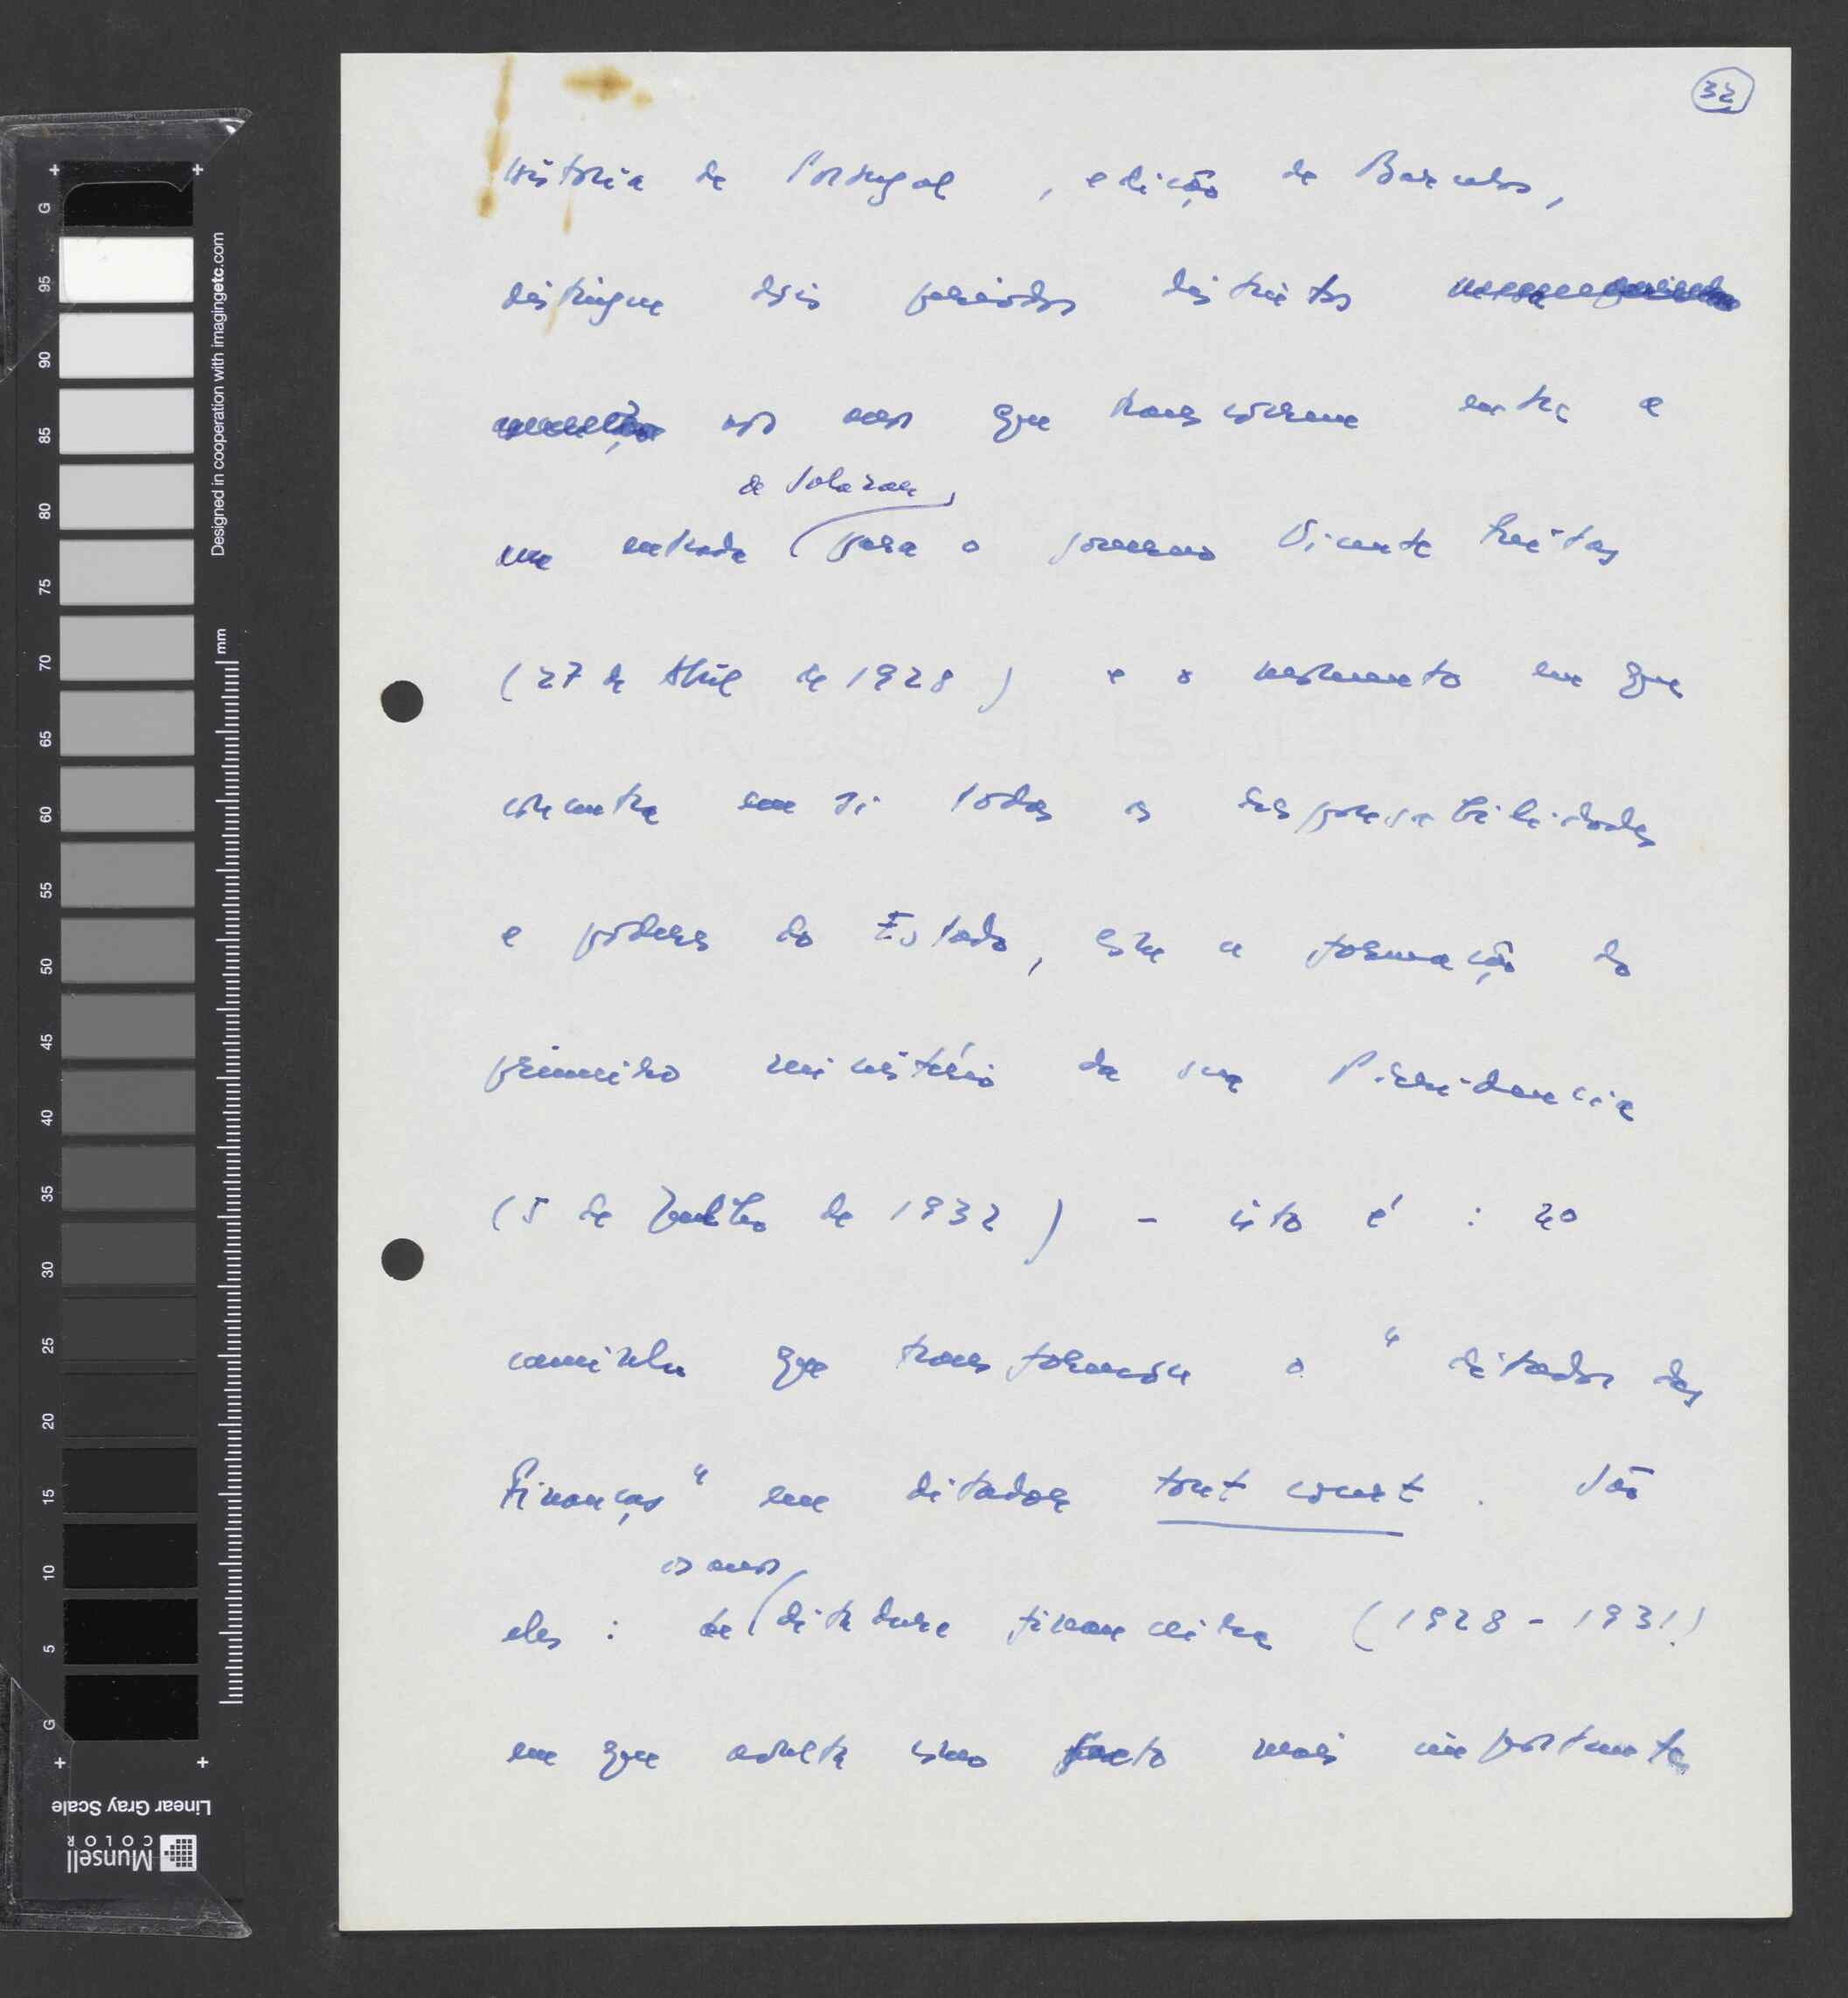 32
História de Portugal, edição de Barcelos,
distingue dois periodos distintos
nos anos que transcorrem entre a
de Salazar
entrada para o governo Vicente Freitas
(27 de Abril de 1928) e o momento em que
concentra em si todas as responsabilidades
e poderes do Estado, com a formação do
primeiro ministério da sua Presidencia
(5 de Julho de 1932) - isto é: no
caminho que transformou o "ditador das
Finanças" em ditador tout court. São
os anos
eles: de ditadura financeira (1928-1931)
em que avulta como facto mais importante
Designed in cooperation with imagingetc.com
mm
G 95 90 85 80 75 70 65 60 55 50 45 40 35 30 25 20 15 10 5 G
Linear Gray Scale
Munsell
COLOR